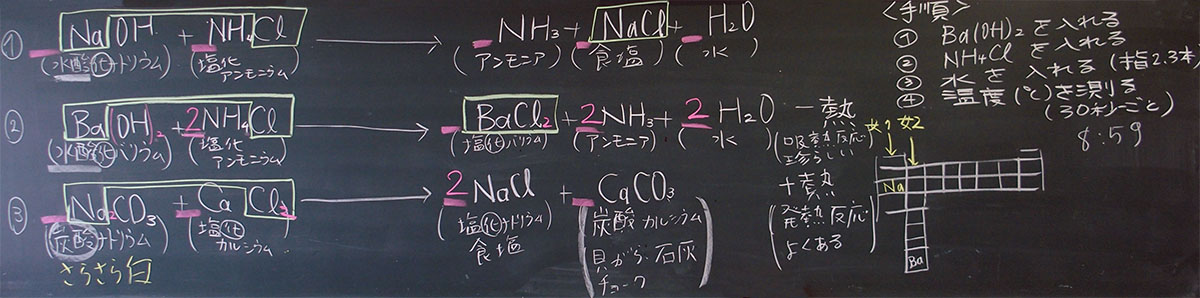 ① NaOH + NH₄Cl → NH₃ + NaCl + H₂O
(水酸化ナトリウム) (塩化アンモニウム) (アンモニア) (食塩) (水)
② Ba(OH)₂ + 2NH₄Cl → BaCl₂ + 2NH₃ + 2H₂O - 熱
(水酸化バリウム) (塩化アンモニウム) (塩化バリウム) (アンモニア) (水) (吸熱反応 珍らしい)
+ 熱
(発熱反応 よくある)
③ Na₂CO₃ + CaCl₂ → 2NaCl + CaCO₃
(炭酸ナトリウム) (塩化カルシウム) (塩化ナトリウム) (炭酸カルシウム
食塩
貝がら 石灰
チョーク)
さらさら白
<手順>
① Ba(OH)₂ を入れる
② NH₄Cl を入れる
③ 水を入れる (指2.3本)
④ 温度(℃)を測る
(30秒ごと)
8:59
女1 女2
Na
Ba